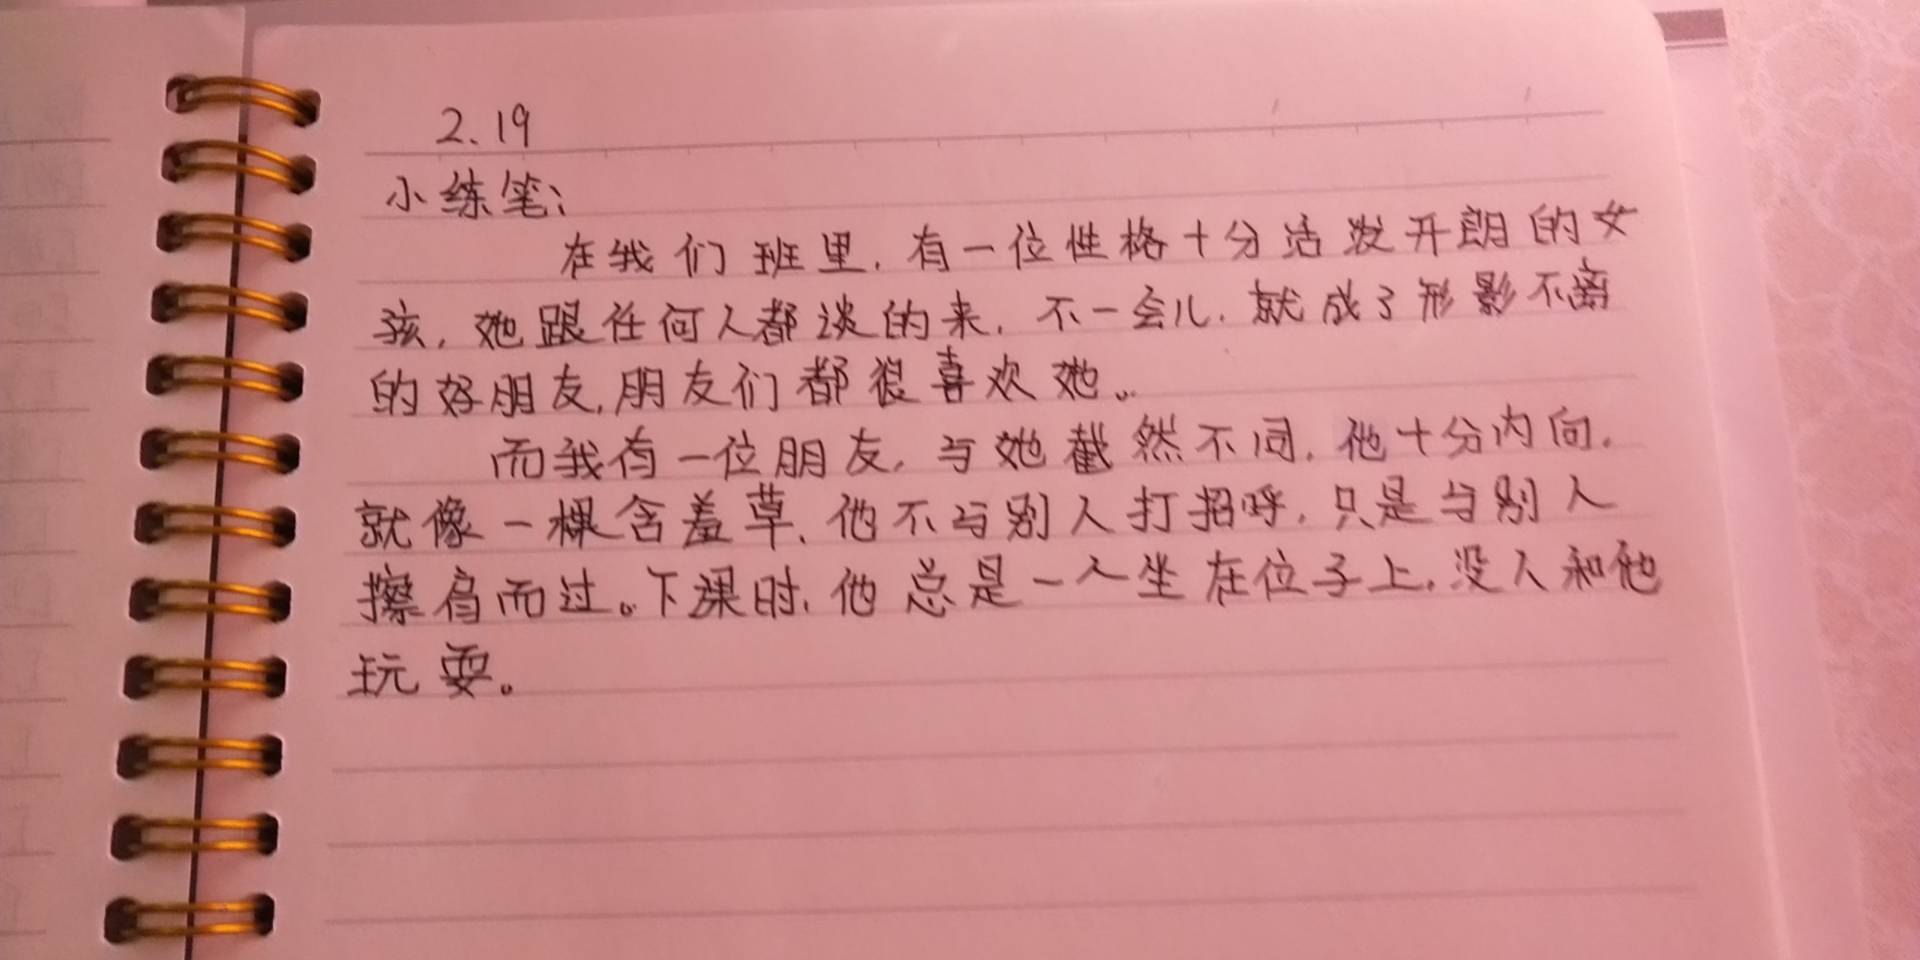 2.19
小练笔：
在我们班里，有一位性格十分活泼开朗的女
孩，她跟任何人都谈的来，不一会儿，就成了形影不离
的好朋友，朋友们都很喜欢她。
而我有一位朋友，与她截然不同，他十分内向，
就像一棵含羞草，他不与别人打招呼，只是与别人
擦肩而过。下课时，他总是一人坐在位子上，没人和他
玩耍。